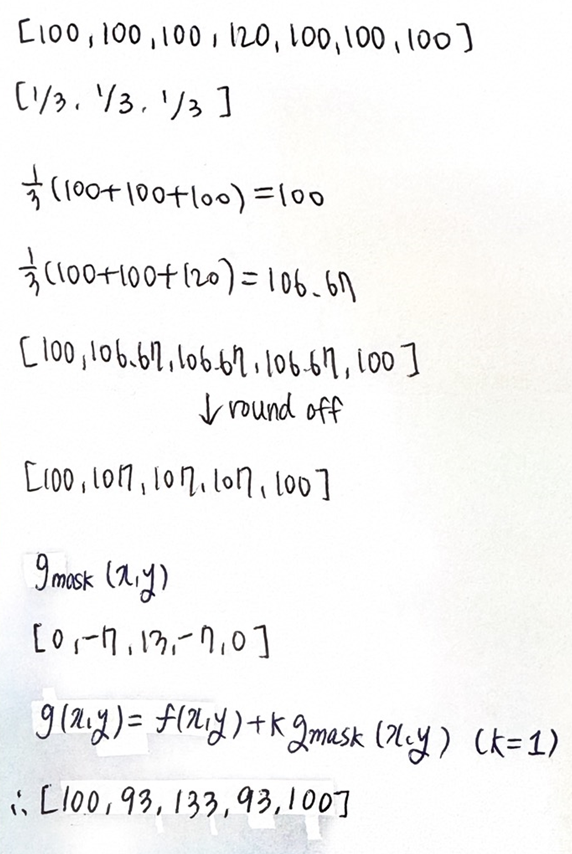 [100, 100, 100, 120, 100, 100, 100]
[1/3, 1/3, 1/3]
1/3(100+100+100)=100
1/3(100+100+120)=106.67
[100, 106.67, 106.67, 106.67, 100]
↓ round off
[100, 107, 107, 107, 100]
gmask (x,y)
[0, -7, 13, -7, 0]
g(x,y) = f(x,y) + k gmask (x,y) (k=1)
∴ [100, 93, 133, 93, 100]